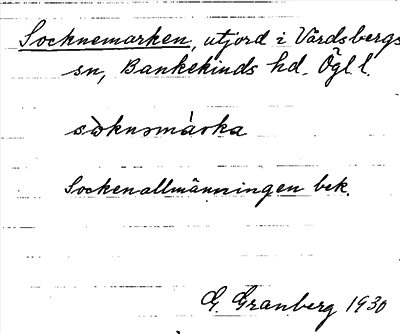 Socknemarken, utjord i Vårdsbergs
sn, Bankekinds hd. Ögl l.
såknsmàrka
Sockenallmänningen bek.
G. Granberg 1930